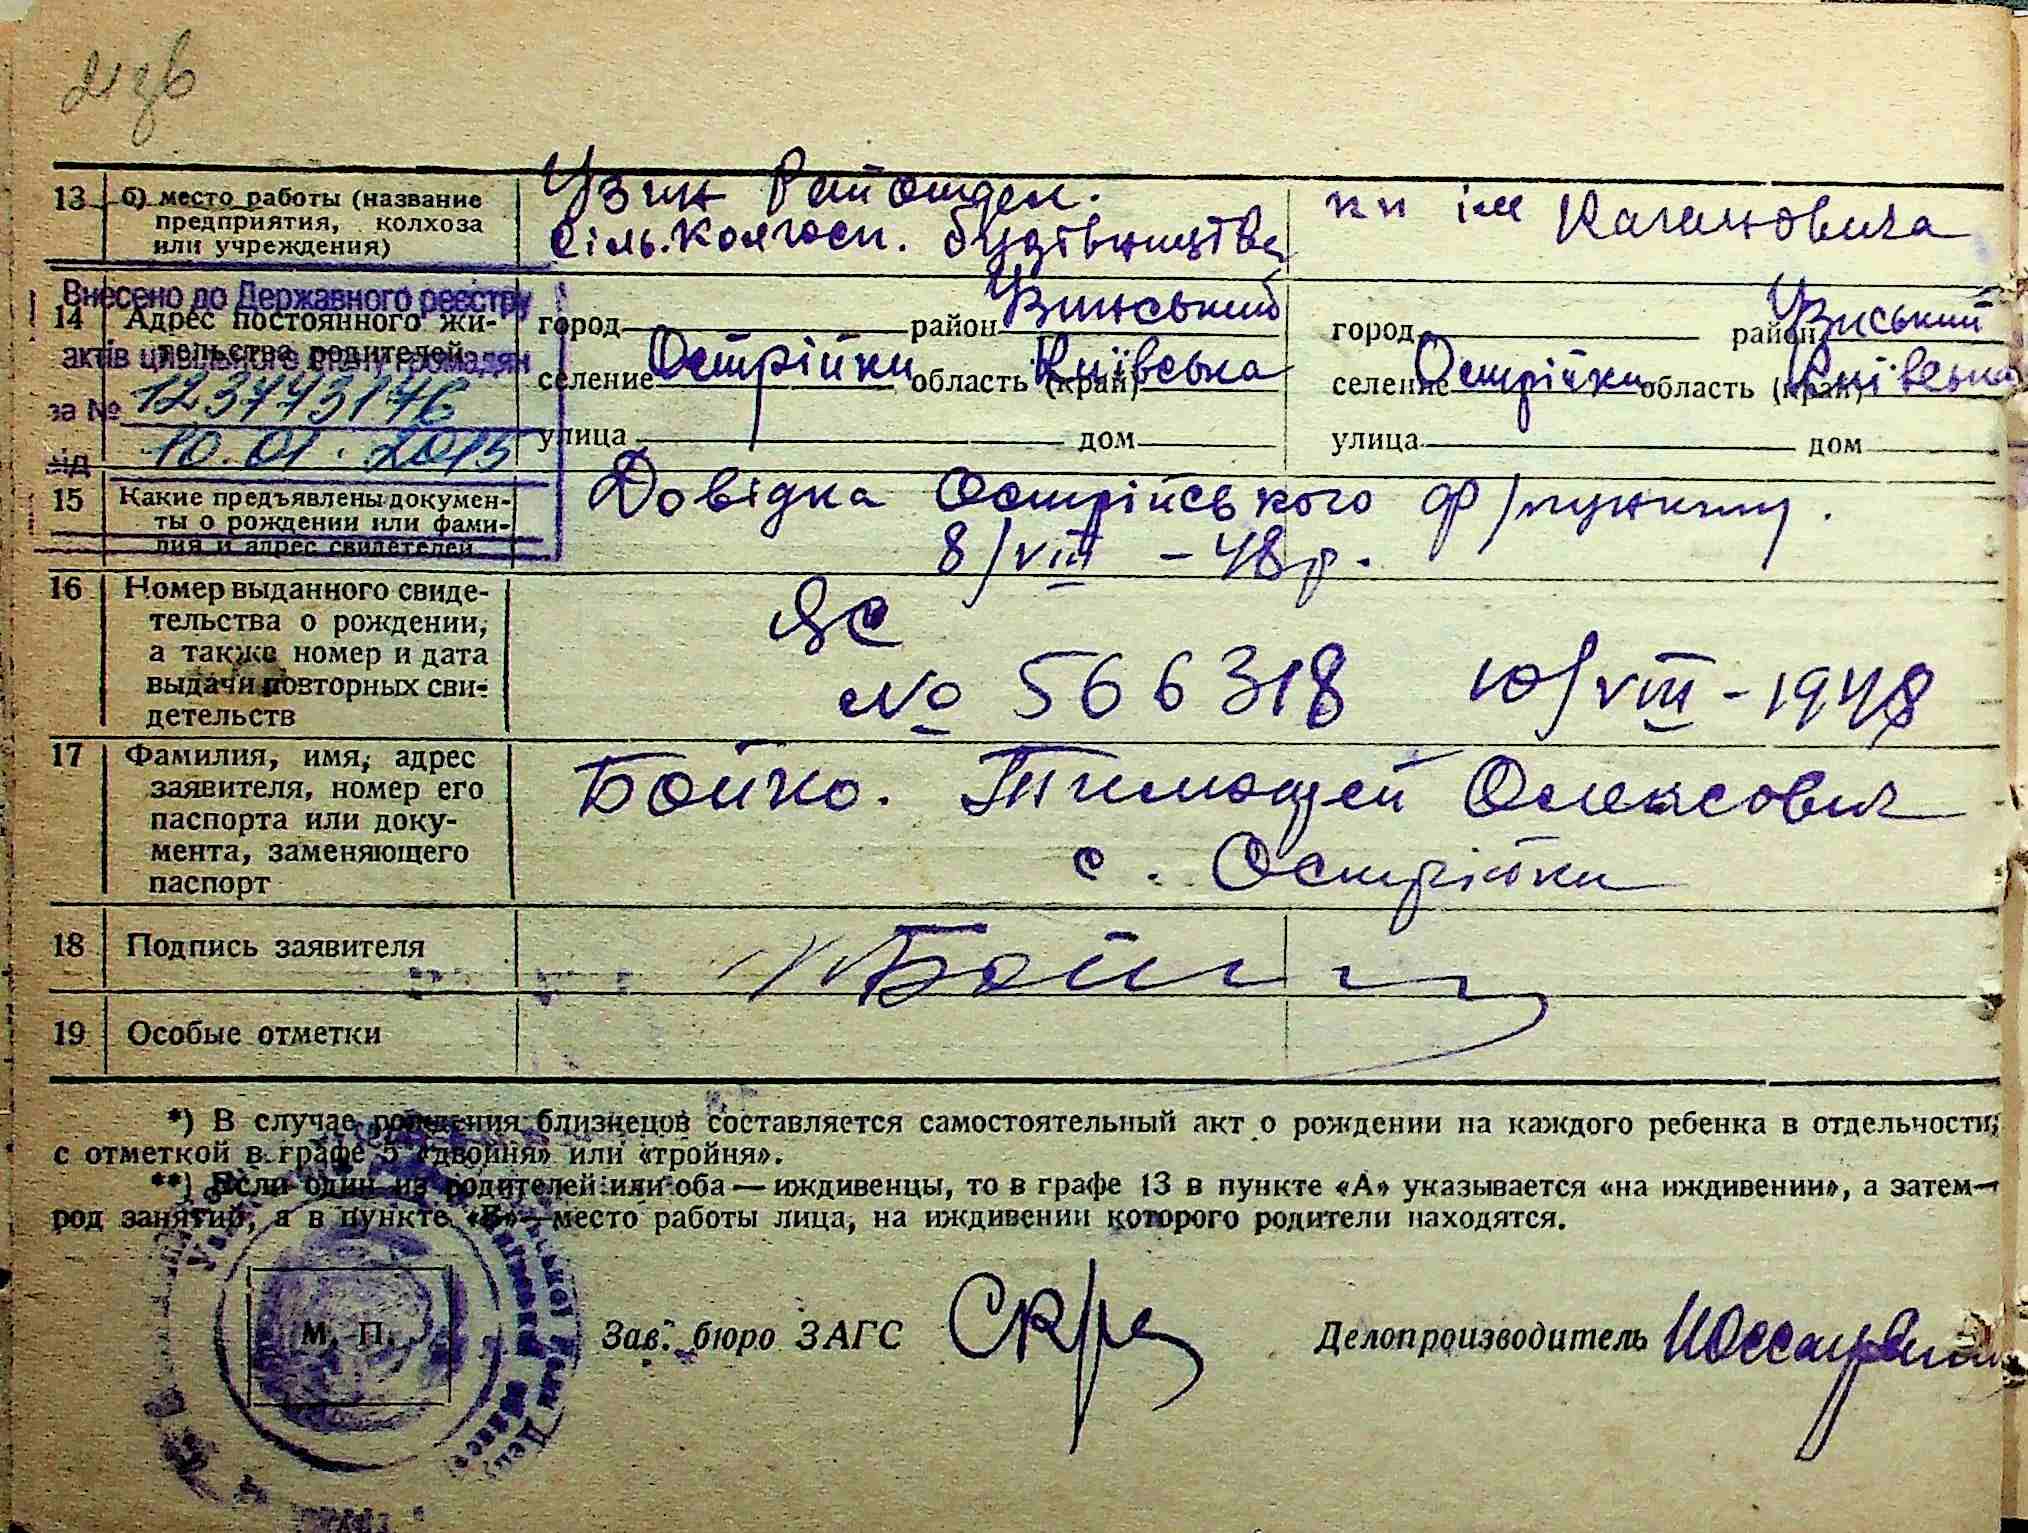 13 б) место работы (название предприятия, колхоза или учреждения)
Узин Райотдел. сіль.колгосп. будівництва
кп ім Кагановича
Внесено до Державного реєстру
актів цивільного стану громадян
за № 123773146
від 10.01.2015
14 Адрес постоянного жительства родителей
город район Узинський
селение Острійки область (край) Київська
улица дом
город район Узиський
селение Острійки область (край) Київська
улица дом
15 Какие предъявлены докумен-
ты о рождении или фами-
лия и адрес свидетелей
Довідка Острійського ф/пункту.
8/VIII - 48р.
16 Номер выданного свиде-
тельства о рождении,
а также номер и дата
выдачи повторных сви-
детельств
ЯС
№ 566318 10/VIII-1948
17 Фамилия, имя, адрес
заявителя, номер его
паспорта или доку-
мента, заменяющего
паспорт
Бойко. Тимофей Олексович
с. Острійки
18 Подпись заявителя
Бойко
19 Особые отметки
*) В случае рождения близнецов составляется самостоятельный акт о рождении на каждого ребенка в отдельности,
с отметкой в графе 5 «двойня» или «тройня».
**) Если один из родителей или оба — иждивенцы, то в графе 13 в пункте «А» указывается «на иждивении», а затем—
род занятий, а в пункте «Б»—место работы лица, на иждивении которого родители находятся.
М. П.
Зав. бюро ЗАГС
Делопроизводитель